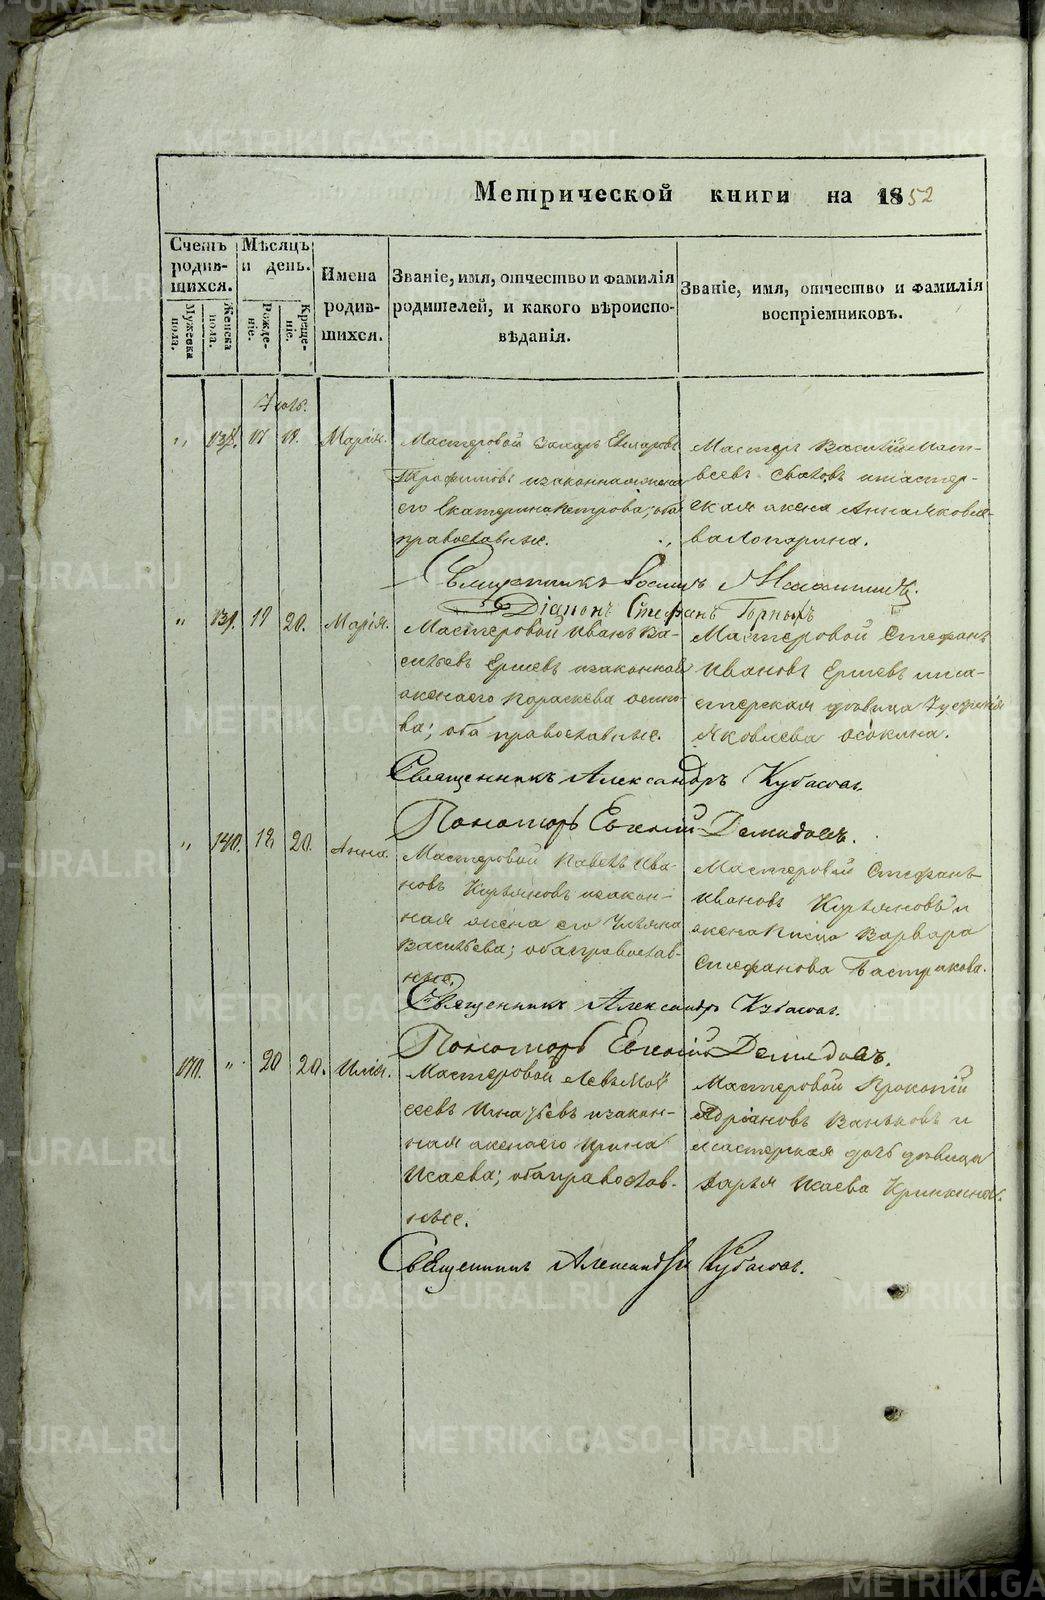 Метрической книги на 1852
Счетъ родив- шихся.
Мѣсяцъ и день.
Имена родив- шихся.
Званіе, имя, отчество и фамилія родителей, и какого вѣроиспо- вѣданія.
Званіе, имя, отчество и фамилія воспріемниковъ.
Мужеска пола.
Женска пола.
Рожде- ніе.
Креще- ніе.
138. 17 19. Марія.
Мастеровой Захаръ
Трофимовъ и законная жена
его Екатерина Петрова; оба
православные.
Мастеръ Василій Мат-
веевъ и мастер-
ская жена Анна Яковле-
ва Лопарина.
Священникъ
Діаконъ Стефанъ Горныхъ
" 139. 19 20. Марія.
Мастеровой Иванъ Ва-
сильевъ Ершевъ и законная
жена его Параскева Осипо-
ва; оба православные.
Мастеровой Стефанъ
Ивановъ Ершевъ и ма-
стерская дѣвица
Яковлева Осокина.
Священникъ Александръ Кубасовъ.
Пономарь Евгеній Демидовъ.
" 140. 18 20. Анна.
Мастеровой Павелъ Ива-
новъ Курьяновъ и закон-
ная жена его Ульяна
Васильева; оба православ-
ные.
Мастеровой Стефанъ
Ивановъ Курьяновъ и
жена писца Варвара
Стефанова Бастрикова.
Священникъ Александръ Кубасовъ.
Пономарь Евгеній Демидовъ.
170. " 20 20. Илія.
Мастеровой Левъ Мой
сеевъ Игнатьевъ и закон-
ная жена его Ирина
Исаева; оба православ-
ные.
Мастеровой Прокопій
Адріановъ Ваньковъ и
мастерская дочь дѣвица
Дарья Исаева
Священникъ Александръ Кубасовъ.
METRIKI.GASO-URAL.RU